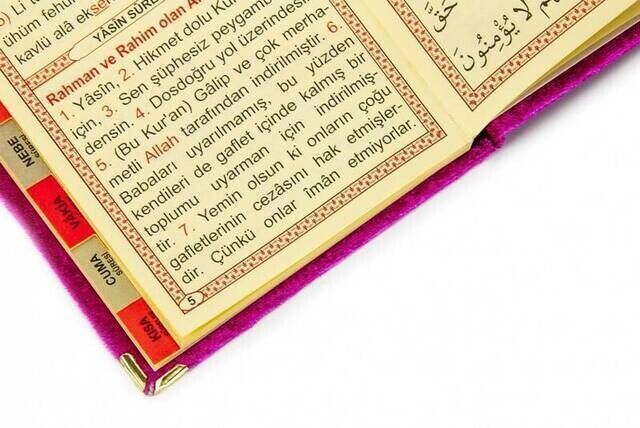 ühüm fehüm
kavlü alâ ekse
YÂSİN SÛR
Rahman ve Rahim olan
1. Yâsîn, 2. Hikmet dolu
için, 3. Sen şüphesiz peygam
densin. 4. Dosdoğru yol üzerindesi
5. (Bu Kur'an) Gâlip ve çok merha-
metli Allah tarafından indirilmiştir. 6.
Babaları uyarılmamış, bu yüzden
kendileri de gaflet içinde kalmış bir
toplumu uyarman için indirilmiş-
tir. 7. Yemin olsun ki onların çoğu
gafletlerinin cezasını hak etmişler-
dir. Çünkü onlar îmân etmiyorlar.
5
NEBE
VÂKIA
CUMA
SÛRESİ
KISA
حَقَّ
لَا يُؤْمِنُونَ